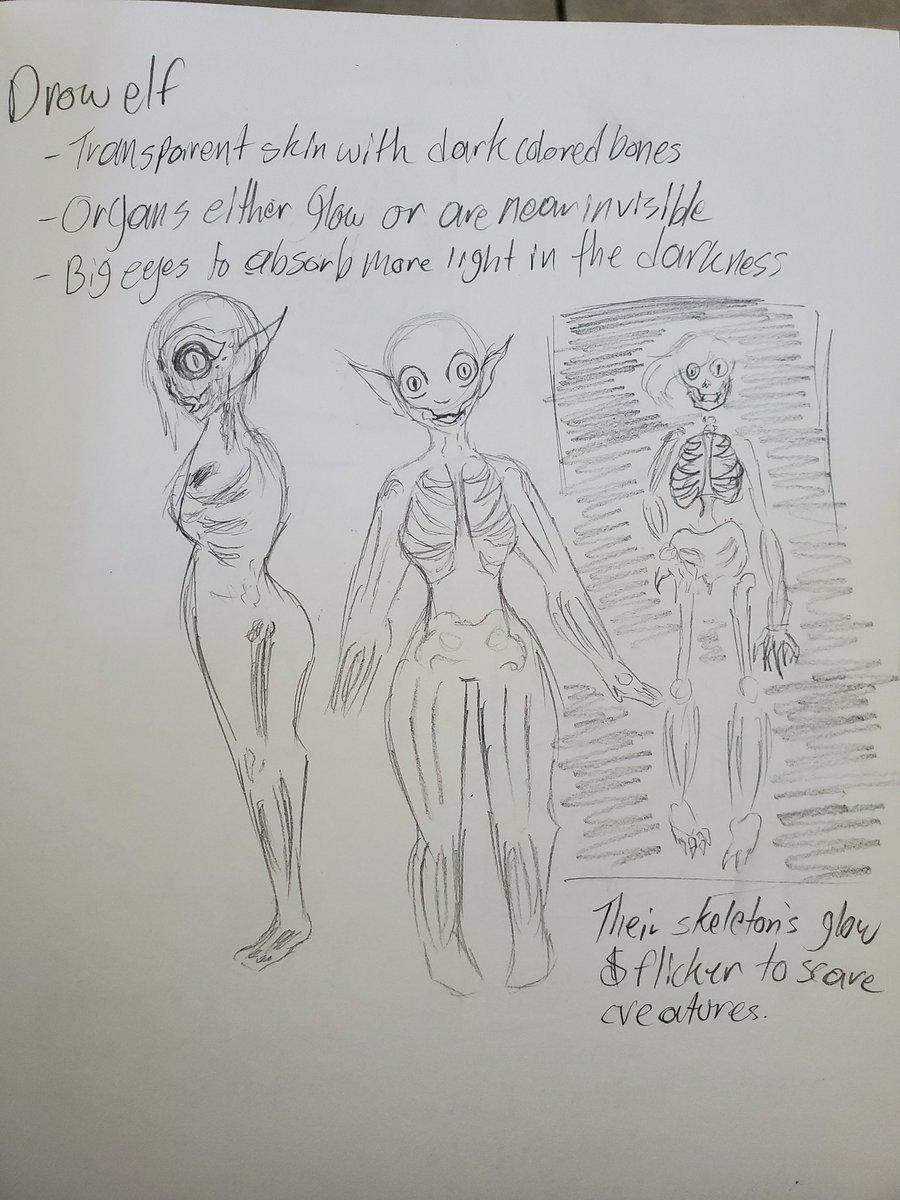 Drow elf
- Transparent skin with dark colored bones
- Organs either Glow or are near invisible
- Big eyes to absorb more light in the darkness
Their skeleton's glow
& flicker to scare
creatures.